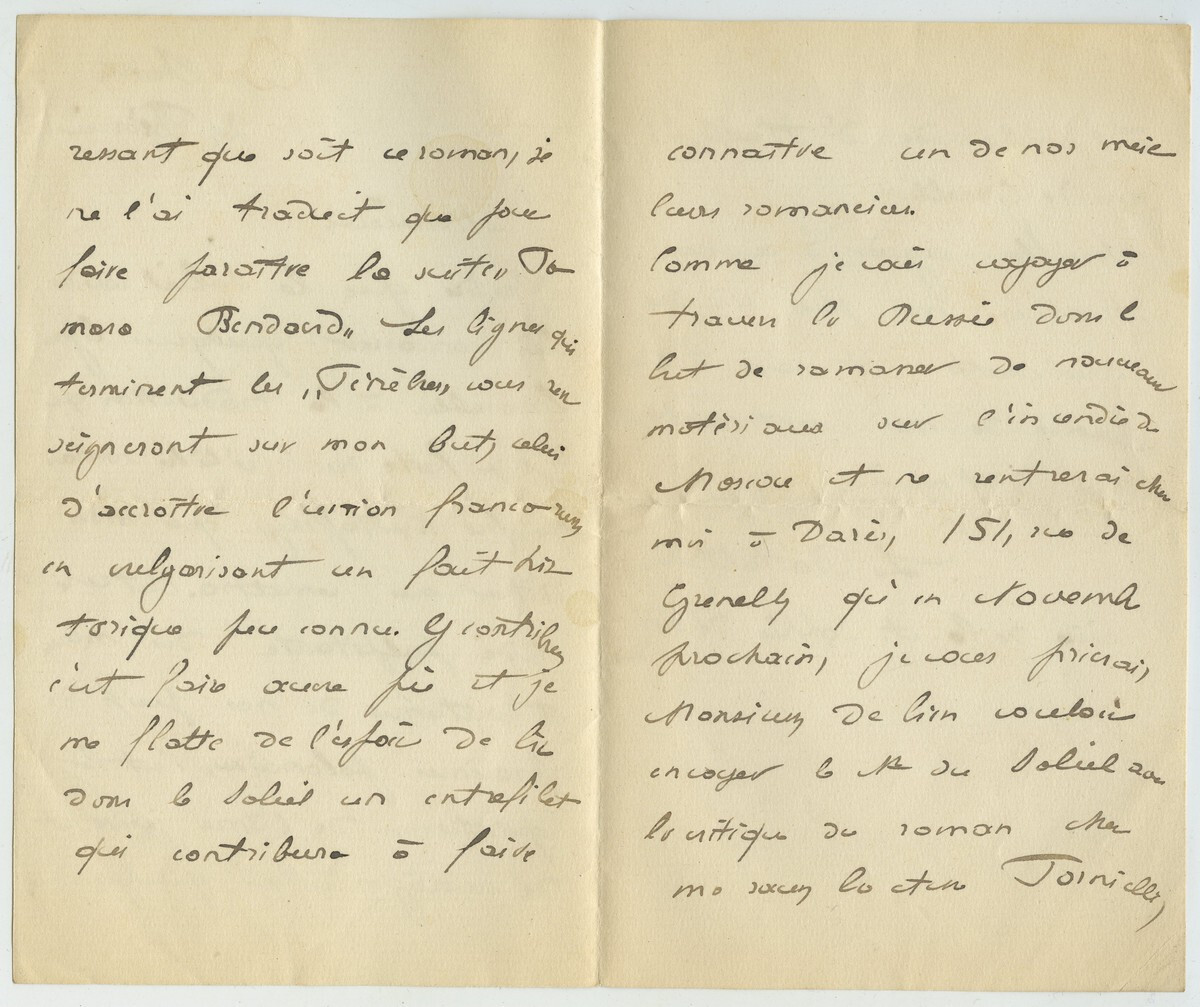 ressant que soit ce roman, je
ne l'ai traduit que pour
faire paraître la suite: "Ta
mara Bendavid" Les lignes qui
terminent les "Ténèbres" vous ren
seigneront sur mon but, celui
d'accroître l'union franco-russe
en vulgarisant un fait his
torique peu connu. Y contribuer
c'est faire œuvre pie et je
me flatte de l'espoir de lire
dans le Soleil un entrefilet
qui contribuera à faire
connaître un de nos meil
leurs romanciers.
Comme je vais voyager à
travers la Russie dans le
but de ramasser de nouveaux
matériaux sur l'incendie de
Moscou et ne rentrerai chez
moi à Paris, 151, rue de
Grenelle qu'en Novembre
prochain, je vous prierai,
Monsieur, de bien vouloir
envoyer le No du Soleil avec
la critique du roman chez
ma sœur la ctesse Tornielli,